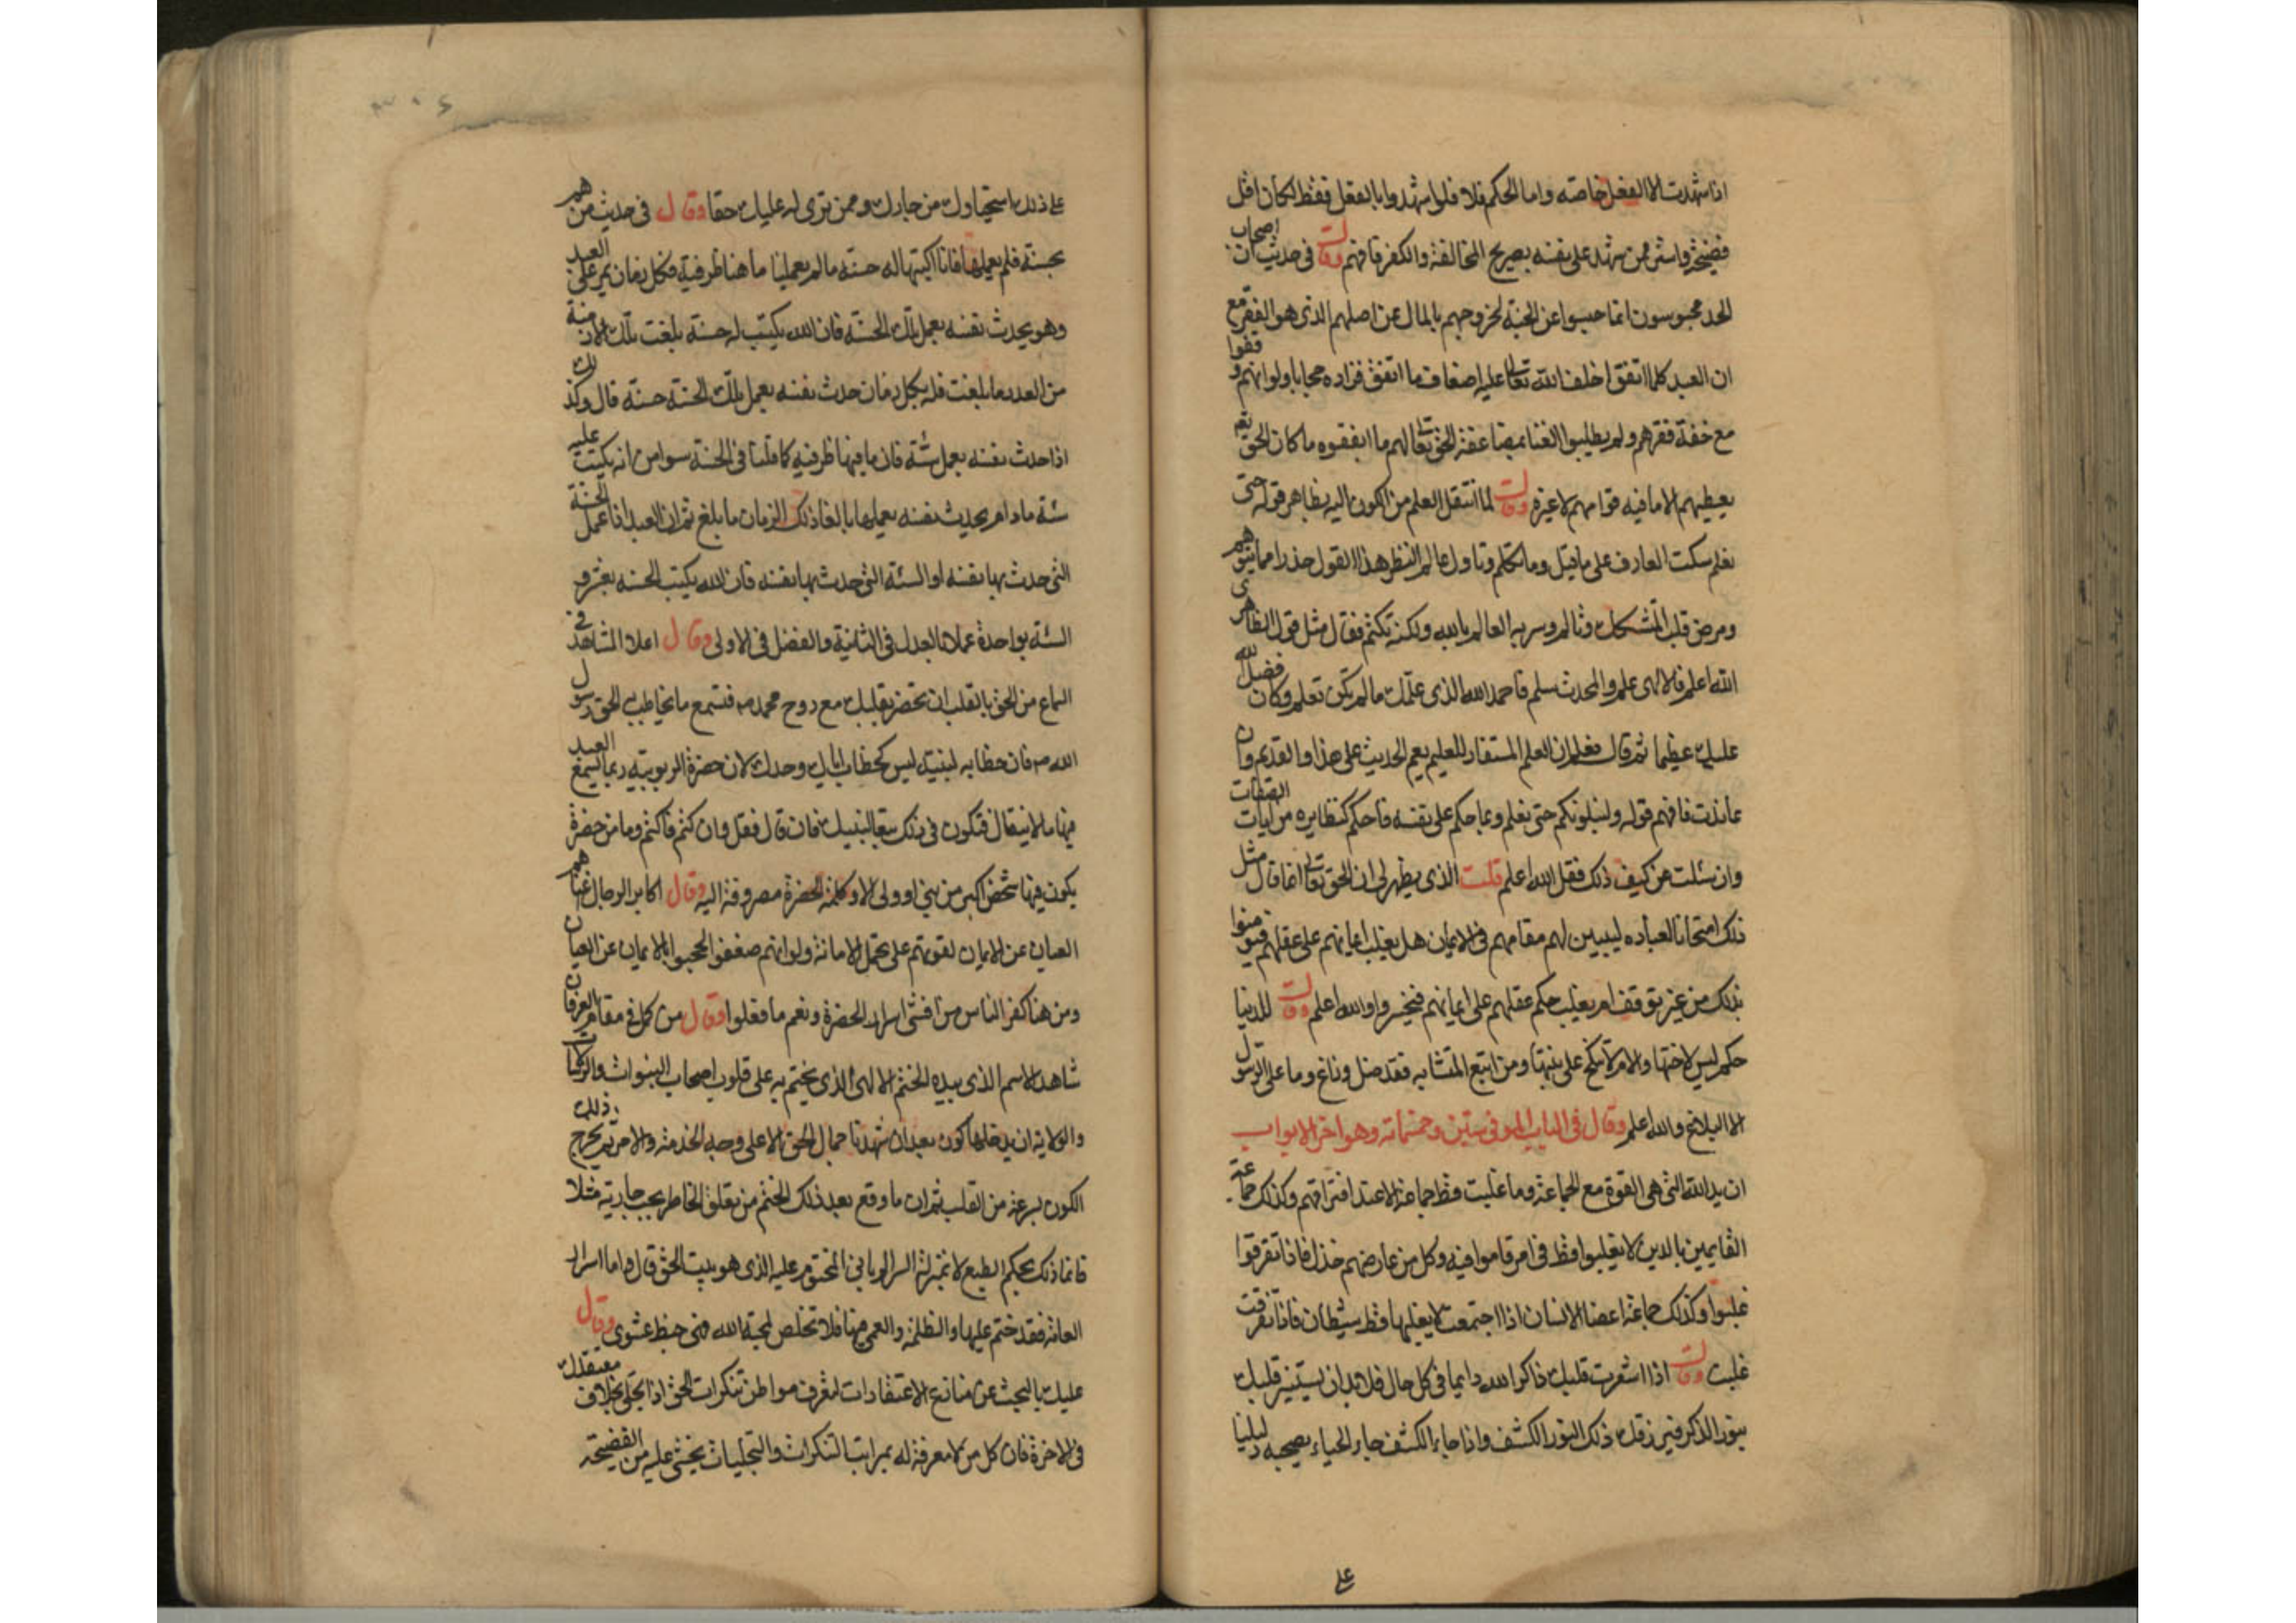 اذا شهدت الا الفعل خاصه واما الحكم فلا فلو شهدوا بالفعل فقط لكان اقل
فضيحة واستر ممن شهد على نفسه بصريح المخالفة والكفر فافهم وقال في حديث ان اصحاب
الجد محبوسون انما حبسوا عن الجنة لخروجهم بالمال عن اصلهم الذي هو الفقر مع
ان العبد كلما انفق اخلف الله تعالى عليه اضعاف ما انفق فزاده حجابا ولو انهم وقفوا
مع خفة فقرهم ولم يطلبوا الغنا بمضاعفة الحق تعالى لهم ما انفقوه ما كان الحق تع
يعطيهم الا ما فيه قوامهم لا غير وقال لما انتقل العلم من الكون اليه بظاهر قوله حتى
نعلم سكت العارف على ما قيل وما تكلم وتاول عالم النظر هذا القول حذرا مما يتوهم
ومرض قلب المتشكك وتالم وسر به العالم بالله ولكنه تكتم فقال مثل قول الظاهري
الله اعلم فالالهى علم والمحدث سلم فاحمد الله الذي علمك ما لم تكن تعلم وكان فضل الله
عليك عظيما ثم قال فعلم ان العلم المستفاد للعليم يعم الحديث على هذا والقديم وان
عاندت فافهم قوله ولنبلونكم حتى نعلم وبما حكم على نفسه فاحكم كنظايره من ايات الصفات
وان سئلت عن كيف ذلك فقل الله اعلم قلت الذي يظهر لي ان الحق تعالى انما قال مثل
ذلك امتحانا لعباده ليبين لهم مقامهم في الايمان هل يغلب ايمانهم على عقلهم فيومنوا
بذلك من غير توقف ام يغلب حكم عقلهم على ايمانهم فيخسروا والله اعلم وقال للدنيا
حكم ليس لاختها والام لا تنكح على بنتها ومن اتبع المتشابه فقد ضل وزاغ وما على الرسول
الا البلاغ والله اعلم وقال في الباب الموفي ستين وخمسمائه وهو اخر الابواب
ان يد الله التي هي القوة مع الجماعة وما غلبت قط جماعة الا عند افتراقهم وكذلك جماعة
القايمين بالدين لا يغلبوا قط في امر قاموا فيه وكل من عارضهم خذل فاذا تفرقوا
غلبوا وكذلك جماعة اعضا الانسان اذا اجتمعت لا يغلبها قط شيطان فاذا تفرقت
غلبت وقال اذا اشعرت قلبك ذاكرا لله دايما في كل حال فلا بد ان يستنير قلبك
بنور الذكر فيرزقك ذلك النور الكشف واذا جاء الكشف جاء الحياء يصحبه دليلنا
على
على ذلك استحياوك من جارك وممن ترى له عليك حقا وقال في حديث من هم
بحسنة فلم يعملها فانا اكتبها له حسنة ما لم يعملها ما هنا ظرفية فكل زمان يمر على العبد
وهو يحدث نفسه بعمل تلك الحسنة فان الله يكتب له حسنة بلغت تلك الازمنة
من العدد ما بلغت فله بكل زمان حدث نفسه بعمل تلك الحسنة حسنة قال وكذلك
اذا حدث نفسه بعمل سئة فان ما فيها ظرفيه كما قلنا في الحسنة سوا من انه يكتب عليه
سئة ما دام يحدث نفسه بعملها بالغا ذلك الزمان ما بلغ ثم ان العبد اذا عمل الحسنة
التي حدث بها نفسه او السئة التي حدث بها نفسه فان الله يكتب الحسنه بعشر و
السئة بواحدة عملا بالعدل في الثانية والفضل في الاولى وقال اعلا المشاهد في
السماع من الحق بالقلب ان تحضر بقلبك مع روح محمد صم فتسمع ما يخاطب الحق رسول
الله صم فان خطابه لنبيه ليس كخطاب اياك وحدك لان حضرة الربوبية ربما يسمع العبد
فيها ما لا ينقال فتكون في ذلك تبعا لنبيك فان قال فقل وان كتم فاكتم وما من حضرة
يكون فيها شخص اكبر من نبي او ولي الا وكلمة الحضرة مصروفة اليه وقال اكابر الرجال غناهم
العيان عن الايمان لقوتهم على تحمل الامانة ولو انهم ضعفوا لحجبوا بالايمان عن العيان
ومن هنا كفر الناس من افشى اسرار الحضرة ونعم ما فعلوا وقال من كمل في مقام العرفان
شاهد الاسم الذي بيده الختم الالهى الذي يختم به على قلوب اصحاب النبوات والرسالات
والولاية ان يدخلها كون بعد ان شهدنا جمال الحق الا على وجه الخدمة والامر ثم يخرج ذلك
الكون بسرعة من القلب ثم ان ما وقع بعد ذلك الختم من تعلق الخاطر بحب جارية مثلا
فانما ذلك بحكم الطبع لا بمنزلة السر الرباني المختوم عليه الذي هو بيت الحق قال واما اسرار
العامة فقد ختم عليها والظلمة والعمى فيها فلا تخلص لمحبة الله فهي خبط عشوى وقال
عليك بالبحث عن منازع الاعتقادات لتعرف مواطن تنكرات الحق اذا تجلى بخلاف معتقدك
في الاخرة فان كل من لا معرفة له بمراتب التنكرات والتجليات يخشى عليه من الفضيحة